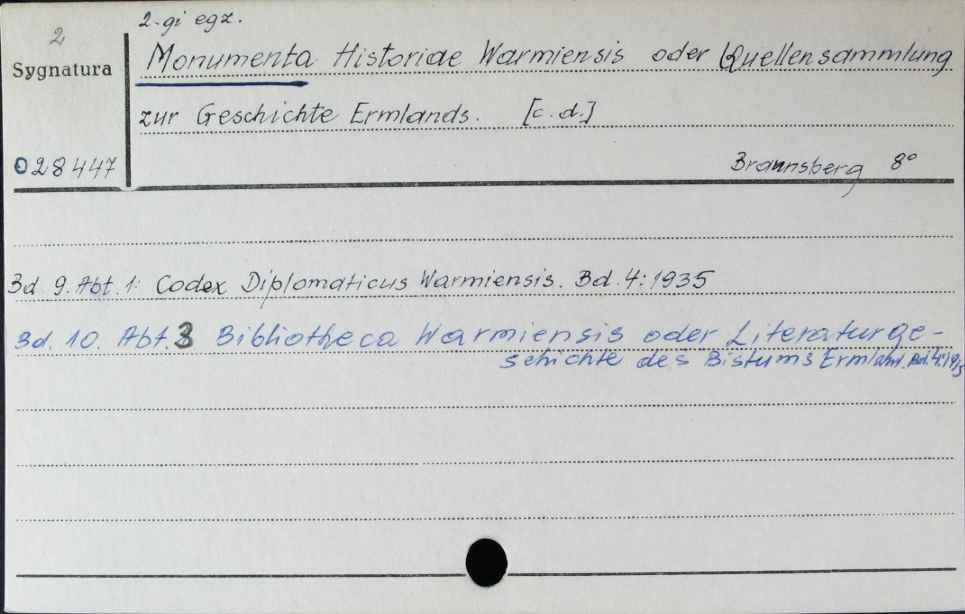 2 2-gi egz.
Sygnatura Monumenta Historiae Warmiensis oder Quellensammlung
zur Geschichte Ermlands. [c.d.]
028447 Braunsberg 8°
Bd 9. Abt. 1: Codex Diplomaticus Warmiensis. Bd. 4: 1935
Bd. 10. Abt. 3 Bibliotheca Warmiensis oder Literaturge-
schichte des Bistums Ermland. Bd. 4: